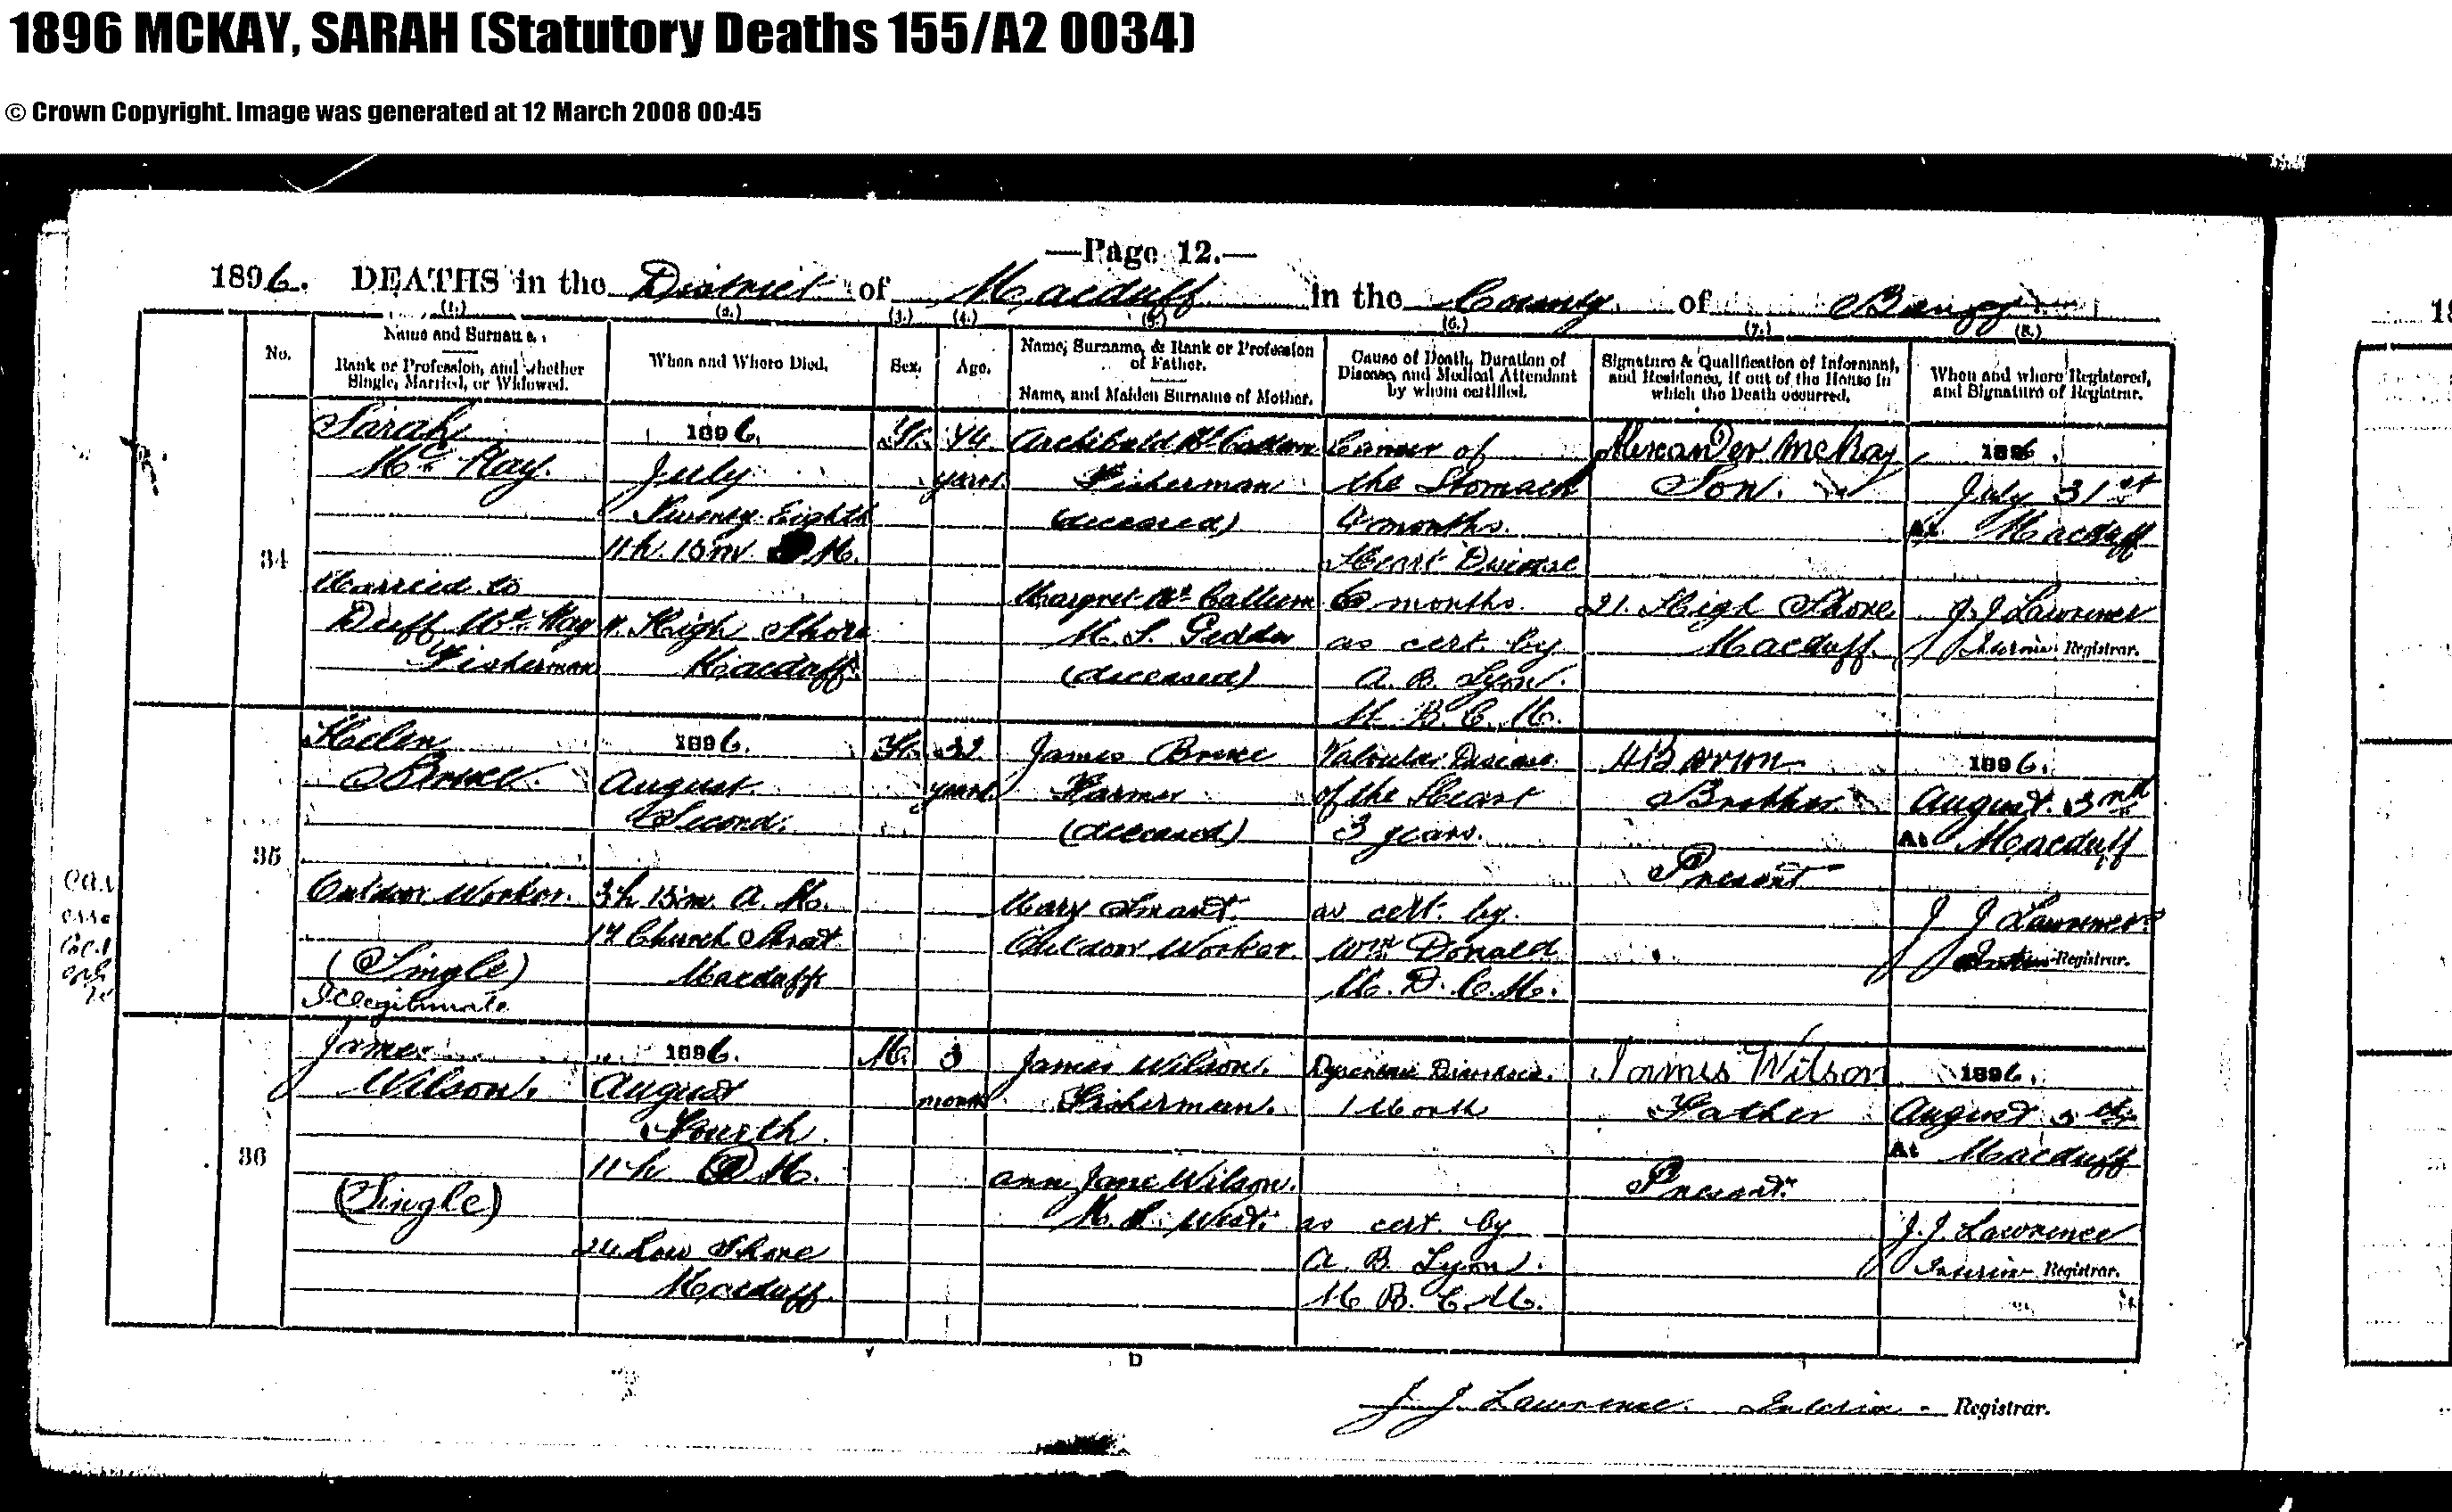 1896 MCKAY, SARAH (Statutory Deaths 155/A2 0034)
© Crown Copyright. Image was generated at 12 March 2008 00:45
—Page 12.—
1896. DEATHS in the District of Macduff in the County of Banff
(1.) (2.) (3.) (4.) (5.) (6.) (7.) (8.)
No.
Name and Surname.
Rank or Profession, and whether
Single, Married, or Widowed.
When and Where Died.
Sex.
Age.
Name, Surname, & Rank or Profession
of Father.
Name, and Maiden Surname of Mother.
Cause of Death, Duration of
Disease, and Medical Attendant
by whom certified.
Signature & Qualification of Informant,
and Residence, if out of the House in
which the Death occurred.
When and where Registered,
and Signature of Registrar.
34
Sarah
McKay.
Married to
Duff McKay
Fisherman
1896.
July
Twenty Eighth
11h. 15m. M.
High Shore
Macduff.
F.
74
years.
Archibald McCallum
Fisherman
(deceased)
Margret McCallum
M.S. Geddes
(deceased)
Cancer of
the Stomach
4 months.
Heart Disease
6 months.
as cert. by
A. B. Lyon.
M. B. C. M.
Alexander McKay
Son.
21. High Shore
Macduff.
1896.
July 31st
At Macduff
J. J. Lawrence
Interim Registrar.
35
Helen
Bruce.
Outdoor Worker.
(Single)
Illegitimate
1896.
August
Second.
3h. 15m. A. M.
17 Church Street
Macduff
F.
32
years.
James Bruce
Farmer
(deceased)
Mary Smart.
Outdoor Worker.
Valvular Disease
of the Heart
3 years.
as cert. by.
Wm. Donald
M. D. C. M.
Brother
Present
1896.
August 3rd
At Macduff
J J Lawrence
Interim Registrar.
36
James
Wilson.
(Single)
1896.
August
Fourth.
11h. M.
24 Low Shore
Macduff.
M.
3
months
James Wilson.
Fisherman.
Ann Jane Wilson.
M. S. West.
1 Month
as cert. by
A. B. Lyon.
M. B. C. M.
James Wilson
Father
Present.
1896.
August 5th
At Macduff
J. J. Lawrence
Interim Registrar.
D
J J Lawrence. Interim Registrar.